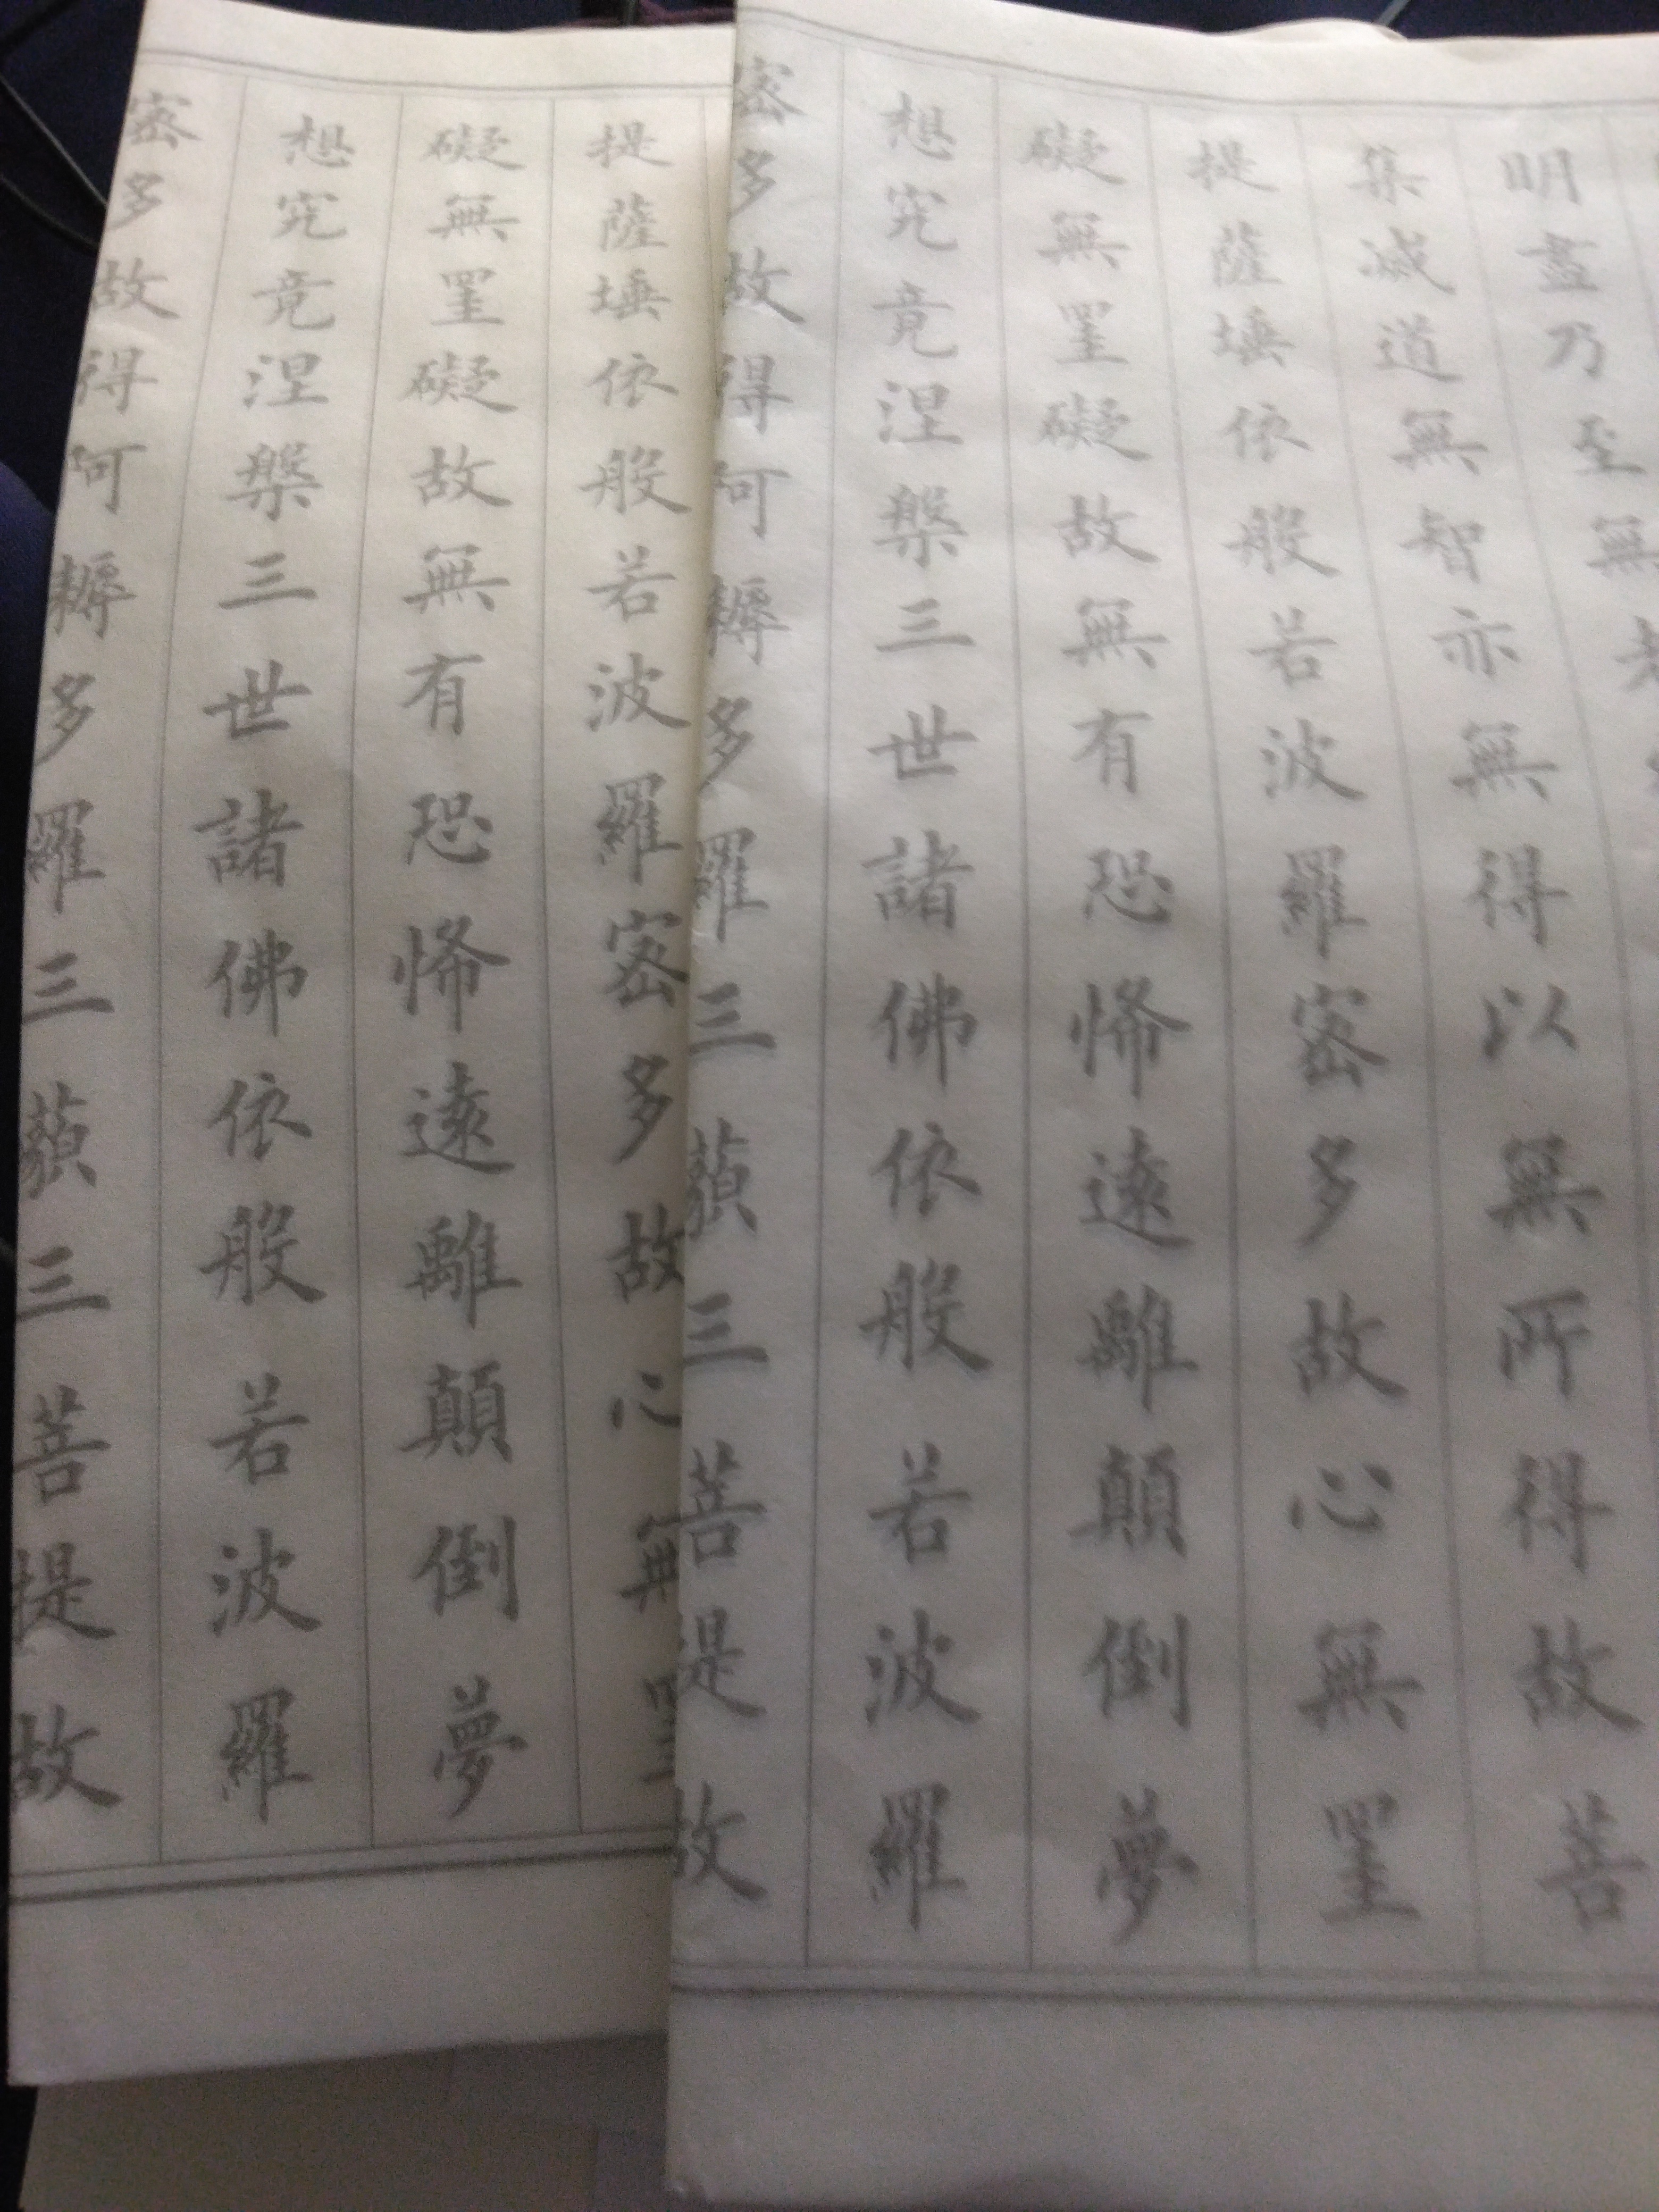 明盡乃至無老
集滅道無智亦無得以無所得故菩
提薩埵依般若波羅密多故心無罣
礙無罣礙故無有恐怖遠離顛倒夢
想究竟涅槃三世諸佛依般若波羅
密多故得阿耨多羅三藐三菩提故
提薩埵依般若波羅密多故心無罣
礙無罣礙故無有恐怖遠離顛倒夢
想究竟涅槃三世諸佛依般若波羅
密多故得阿耨多羅三藐三菩提故